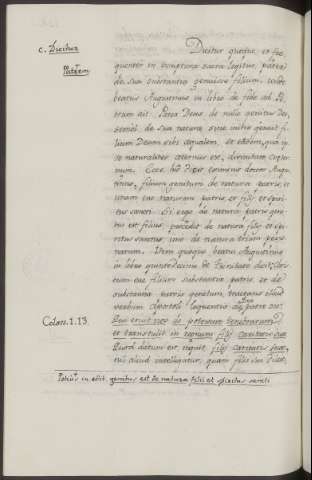 c. Dicitur
Patrem
Dicitur quoque, et fre
quenter in scriptura sacra legitur, patrem
de sua substantia genuisse filium. unde
beatus Augustinus in libro de fide ad Pe
trum ait. Pater Deus de nullo genitus Deo,
semel de sua natura sine initio genuit fi
lium Deum sibi aequalem, et eadem, qua ip
se naturaliter aeternus est, divinitate coaeter
num. Ecce his dicit Augus
tinus, filium genitum de natura patris, et
unam esse naturam patris, et filij, et spiri
tus sancti. Si ergo de natura patris geni
tus est filius, procedit de natura filij, et spi
ritus sanctus, una est natura trium perso
narum. Item quoque beatus Augustinus
in libro quintodecimo de Trinitate dicit, Chris
tum esse filium substantiae patris, et de
substantia patris genitum, tractans illud
verbum Apostoli loquentis de Deo patre
Colass. 1. 13.
Qui eruit nos de potestate tenebrarum
et transtulit in regnum filij caritatis suae
Quod dictum est, inquit, filij caritatis suae,
nihil aliud intelligatur, quam filij sui dilecti,
in edit. genitus est de natura filii et spiritus sancti